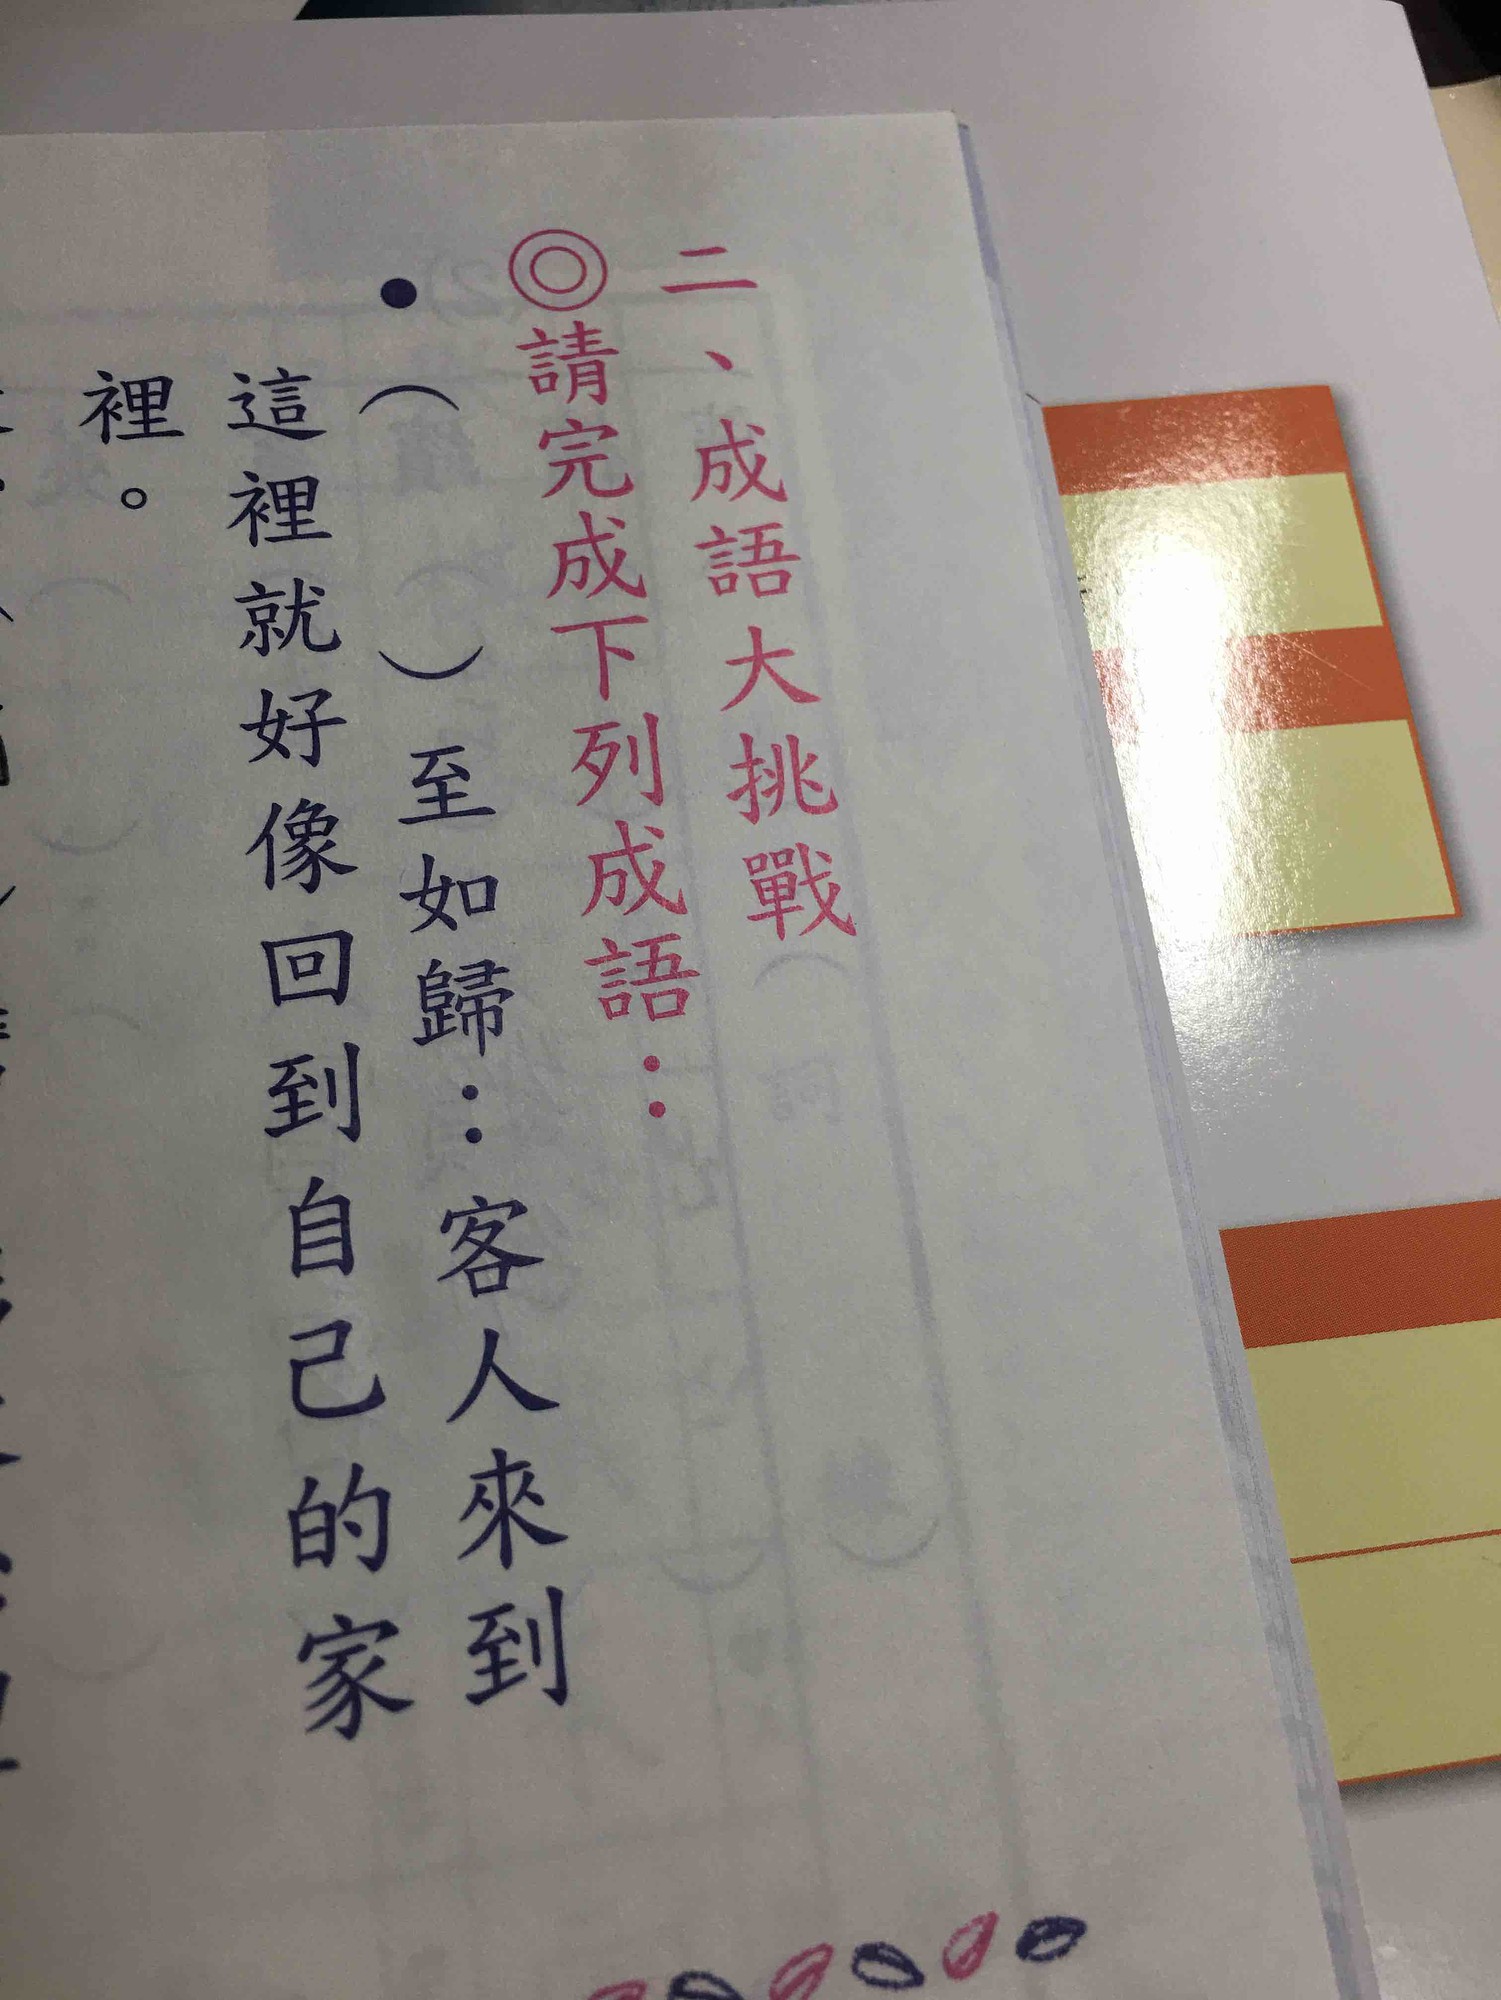 二、成語大挑戰
◎請完成下列成語：
●（　　）至如歸：客人來到
這裡就好像回到自己的家
裡。